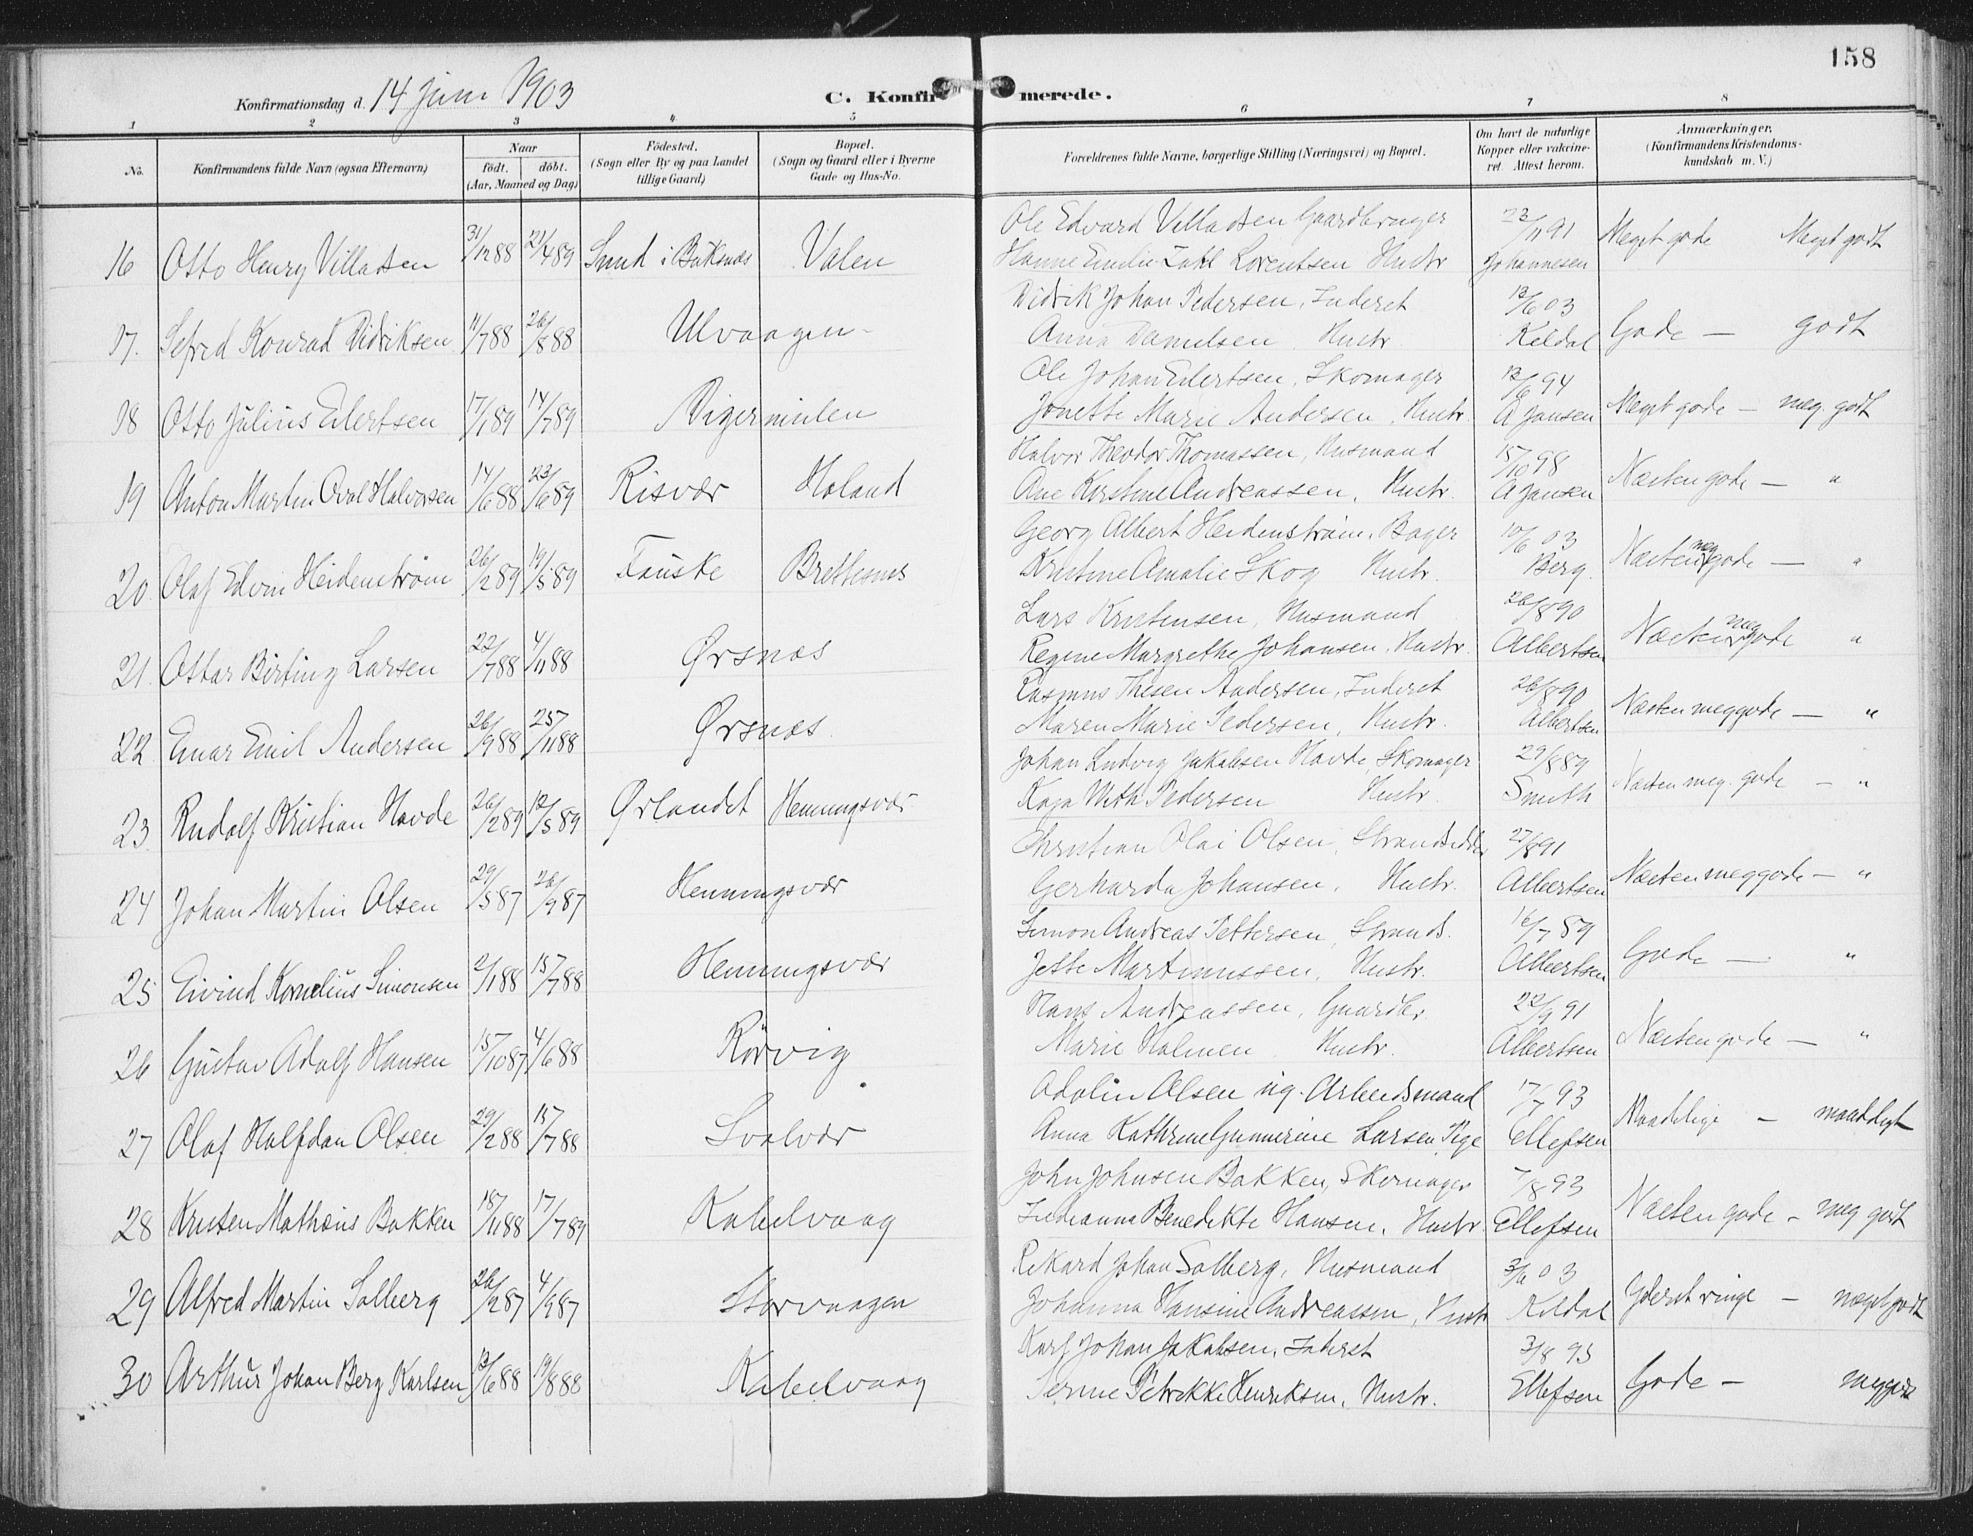 158
Konfirmationsdag d. 14 juni 1903
C. Konfirmerede.
1 2 3 4 5 6 7 8
No.
Konfirmandens fulde Navn (ogsaa Efternavn)
Naar
født. døbt.
(Aar, Maaned og Dag)
Fødested.
(Sogn eller By og paa Landet
tillige Gaard)
Bopæl.
(Sogn og Gaard eller i Byerne
Gade og Hus-No.
Forældrenes fulde Navne, borgerlige Stilling (Næringsvei) og Bopæl.
Om havt de naturlige
Kopper eller vakcine-
ret. Attest herom.
Anmærkninger.
(Konfirmandens Kristendoms-
kundskab m. V.)
Ole Edvard Villadsen Gaardbruger 23/11 91
16 Otto Henry Villadsen 31/12 88 21/4 89 Sund i Buksnæs Valen Hanne Emilie Zahl Lorentsen Hustr Johannesen Meget gode Meget godt
Didrik Johan Pedersen, Inderst 12/6 03
17. Sefred Konrad Didriksen 11/7 88 26/8 88 Ulvaagen Anna Danielsen Hustr. Keldal Gode — godt
Ole Johan Eilertsen, Skomager 12/6 94
18 Otto Julius Eilertsen 17/1 89 14/7 89 Digermulen Jonette Marie Andersen, Hustr. A Jansen Meget gode — meg. godt
Halvor Theodor Thomassen, Husmand 15/10 98
19 Anton Martin Oval Halvorsen 14/6 88 23/6 89 Risvær Holand Ane Kirstine Andreassen, Hustr. A Jansen Næsten gode — "
Georg Albert Heidenstrøm, Bager 10/6 03
20. Olaf Edvin Heidenstrøm 26/2 89 19/5 89 Fauske Brettesnes Kristine Amalie Skog Hustr. Berg. Næsten meg gode — "
Lars Kristensen, Husmand 26/8 90
21. Ottar Birting Larsen 22/7 88 4/11 88 Ørsnæs Regine Margrethe Johansen, Hustr. Albertsen Næsten meg gode "
Rasmus Thesen Andersen, Inderst 26/8 90
22 Einar Emil Andersen 26/9 88 25/11 88 Ørsnæs. Maren Marie Pedersen, Hustr. Albertsen Næsten meg gode — "
Johan Ludvig Jakobsen Hovde, Skomager 29/8 89
23. Rudolf Kristian Hovde 26/2 89 12/5 89 Ørlandet Henningsvær Kaja With Pedersen Hustr. Smith Næsten meg. gode — "
Christian Olai Olsen, Strandsidder 27/8 91
24 Johan Martin Olsen 29/5 87 26/9 87 Henningsvær Gerharda Johansen, Hustr. Albertsen Næsten meg gode — "
Simon Andreas Pettersen, Strands. 16/7 89
25 Eivind Kornelius Simonsen 2/1 88 15/7 88 Henningsvær Jette Martinussen, Hustr. Albertsen Gode — "
Hans Andreassen, Gaardbr. 22/9 91
26 Gustav Adolf Hansen 15/10 87 4/6 88 Rørvig Marie Holmen Hustr. Albertsen Næsten gode — "
Adolin Olsen ug. Arbeidsmand 17/7 93
27 Olaf Halfdan Olsen 29/2 88 15/7 88 Svolvær Anna Kathrine Gunnerine Larsen, Pige Ellefsen Maadelige — maadeligt
John Johnsen Bakken, Skomager 7/8 93
28 Kristen Mathæus Bakken 18/11 88 17/7 89 Kabelvaag Indianna Benedikte Hansen, Hustr. Ellefsen Næsten gode — meg godt
Rikard Johan Solberg, Husmand 3/6 03
29 Alfred Martin Solberg 26/2 87 4/9 87 Storvaagen Johanna Hansine Andreassen, Hustr Keldal Yderst ringe — meget godt
Karl Johan Jakobsen, Inderst 3/8 93
30 Arthur Johan Berg Karlsen 13/6 88 19/8 88 Kabelvaag Petrikke Henriksen, Hustr. Ellefsen Gode — meg godt